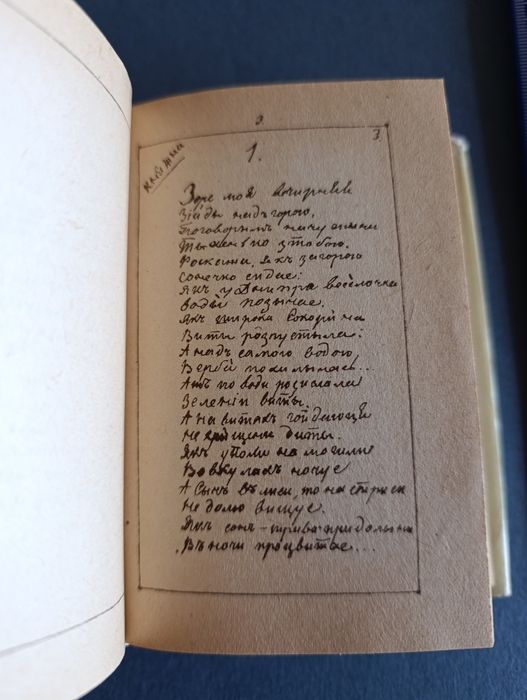 3
княжна
1.
Зоре моя вечирняя
Зійды надъ горою,
Поговорымъ
Тыхенько зтобою.
Роскажи, якъ загорою
Сонечко сидае:
Якъ у Днипра Весёлочка
Воду позычае.
Якъ широка Сокорина
Виты розпустыла:
А надъ самою водою
Верба похилылась...
Ажъ по води розислала
Зелении виты.
А на витахъ гойдаюця
Не хрищени диты.
Якъ уполи на могыли
Вовкулакъ ночуе
А Сычъ въ лиси, то на стриси
Не долю вищуе.
Якъ сонъ-трава при долыни
Въ ночи процвитае...